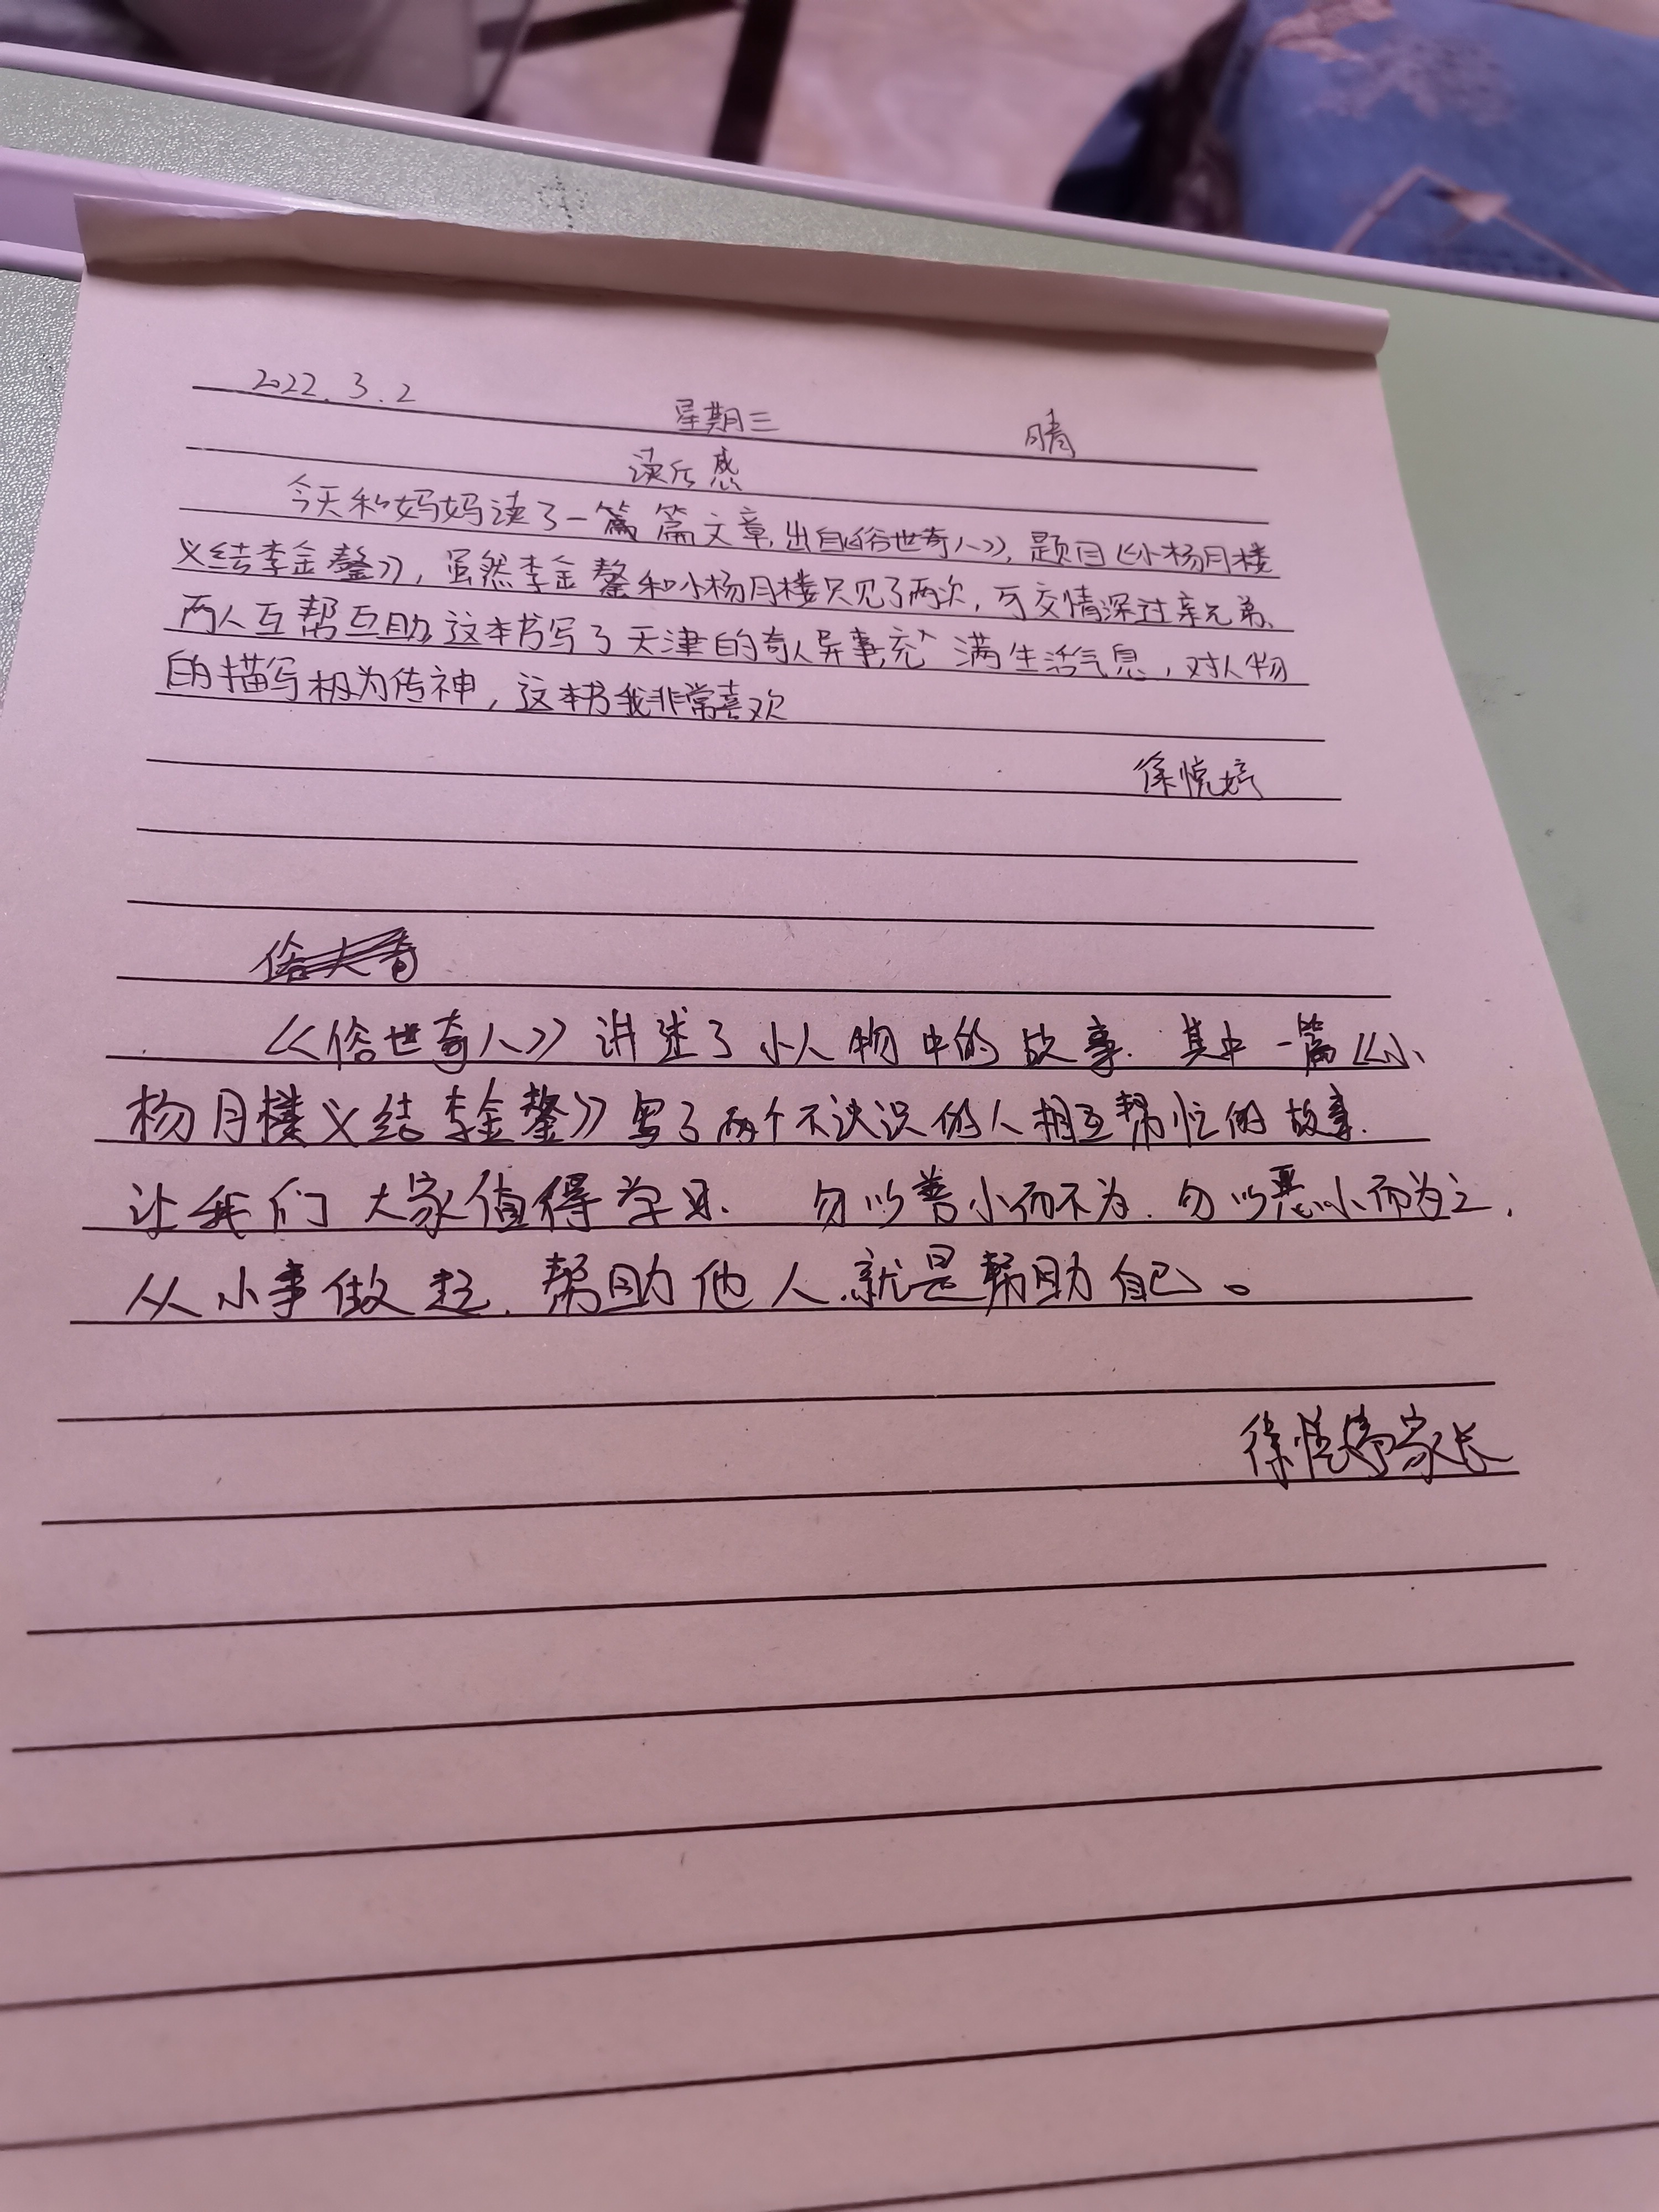 2022.3.2 星期三 晴
读后感
今天和妈妈读了一篇篇文章,出自《俗世奇人》,题目《小杨月楼
义结李金鏊》,虽然李金鏊和小杨月楼只见了两次,可交情深过亲兄弟、
两人互帮互助,这本书写了天津的奇人异事,充满生活气息,对人物
的描写极为传神,这本书我非常喜欢
徐悦婷
《俗世奇人》讲述了小人物中的故事.其中一篇《小
杨月楼义结李金鏊》写了两个不认识的人相互帮忙的故事.
让我们大家值得学习.勿以善小而不为.勿以恶小而为之.
从小事做起.帮助他人.就是帮助自己。
徐悦婷家长